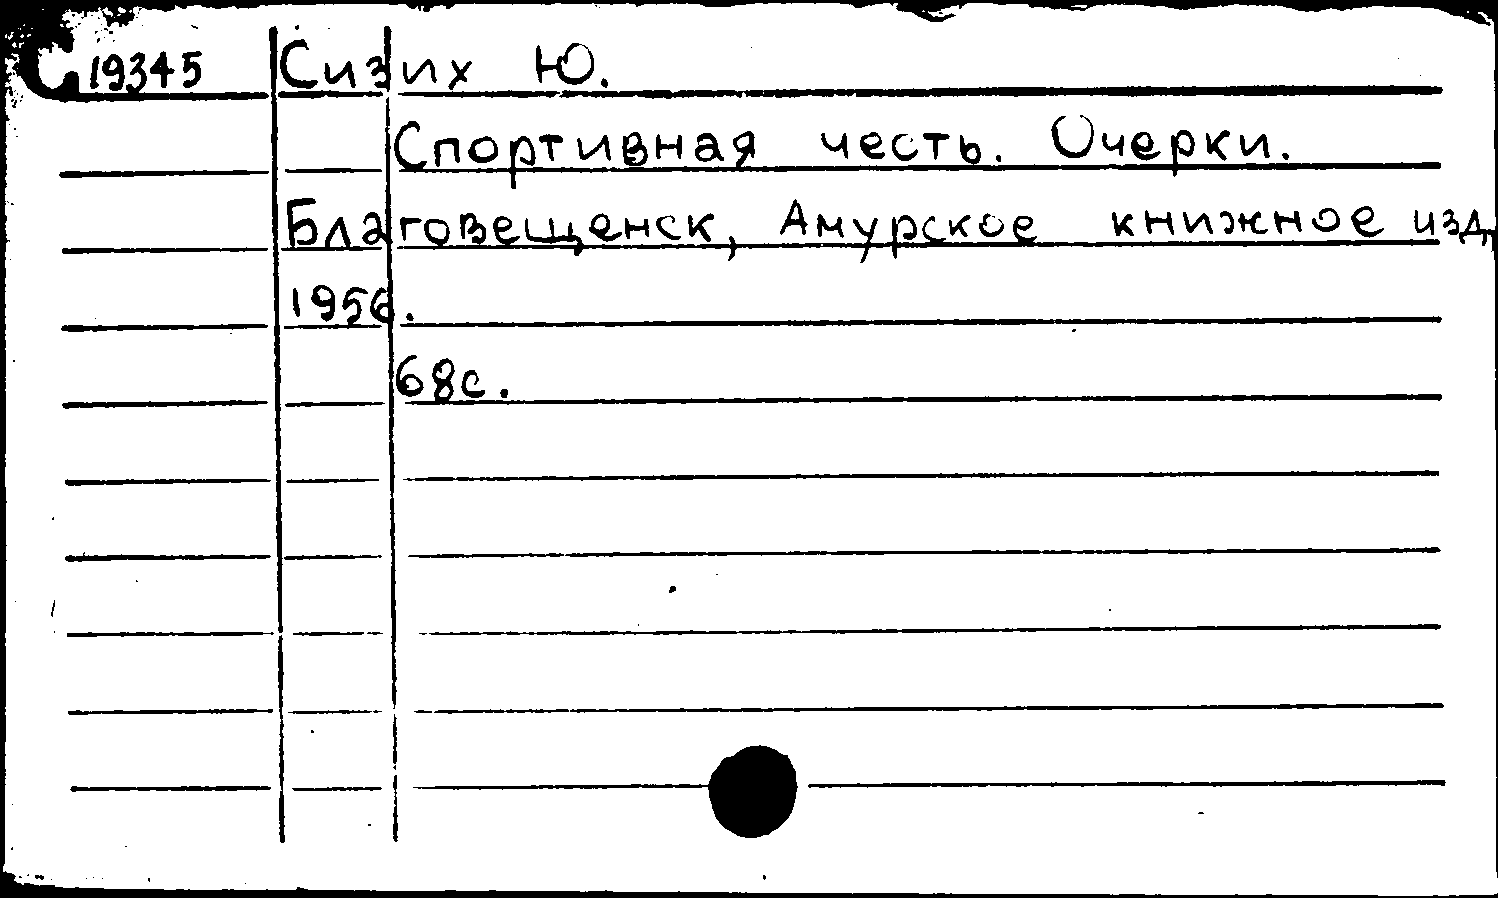 С19345 Сизих Ю.
Спортивная честь. Очерки.
Благовещенск, Амурское книжное изд,
1956.
68с.